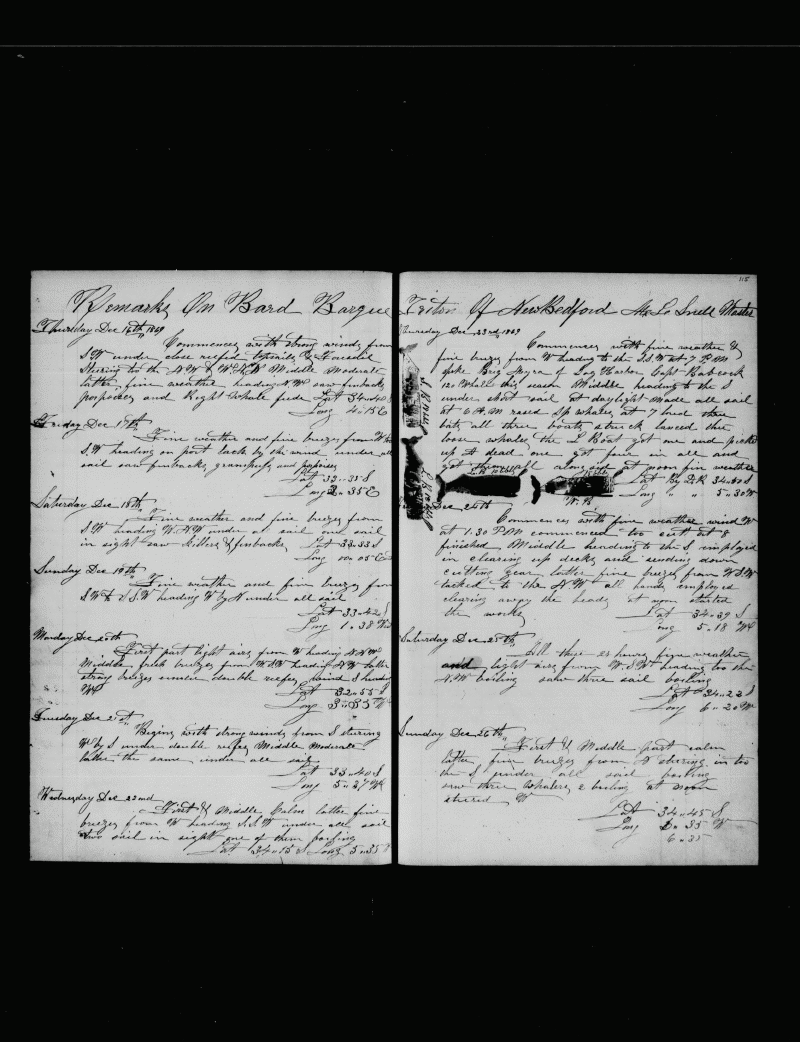 Remarks On Board Barque
Thursday Dec 16th 1869
Commences with strong winds from
S.W under close reefed topsails & Foresail
Steering to the N.W & W.N.W Middle Moderate
latter fine weather heading N.W saw finbacks
porpoises and Right Whale feede Lat 34..40 S
Long 4..15 E
Friday Dec 17th
Fine weather and fine breezes from W to
S.W heading on port tack by the wind under all
sail saw finbacks, grampuses, and porpoises
Lat 33..35 S
Long 2..35 E
Saturday Dec 18th
Fine weather and fine breezes from
S.W heading W.N.W under all sail one sail
in sight saw Killers & finbacks, Lat 33..33 S
Long 00..05 E
Sunday Dec 19th
Fine weather and fine breezes from
S.W to S.S.W heading W by N under all sail
Lat 33..42 S
Long 1..38 W
Monday Dec 20th
First part light airs from W heading N.N.W
Middle fresh breezes from W.S.W heading N.W latter
strong breezes under double reefes wind S heading
W
Lat 32..55 S
Long 3..33 W
Tuesday Dec 21st
Begins with strong winds from S steering
W by S under double reefes Middle Moderate
latter the same under all sail
Lat 33..40 S
Long 5..27 W
Wednesday Dec 22nd
First & Middle Calm latter fine
breezes from W heading S.S.W under all sail
two sail in sight one of them boiling
Lat 34..15 S Long 5..35
115
Triton Of New Bedford Master
Thursday Dec 23rd 1869
Commences with fine weather &
fine breezes from W heading to the S.S.W at 7 P.M
spoke Brig Myra of Sag Harbor Capt Babcock
120 Whale this season Middle heading to the S
under short sail at daylight made all sail
at 6 A.M raised Sp whales, at 7 lowd three
boats all three boats struck lanced three
loose whales, the L Boat got one and picked
up a dead one got four in all and
got them all along side at noon fine weather
Lat 34..40 S
Long " " 5..30 W
L.B
W.B
Dec 24th
Commences with fine weather wind W
at 1.30 P.M commenced too cutt at 8
finished Middle heading to the S employed
in clearing up decks and sending down
cutting gear latter fine breezes from W.S.W
tacked to the N.W all hands employed
clearing away the heads at noon started
the works
Lat 34..39 S
Long 5..18 W
Saturday Dec 25th
All these 24 hours fine weather
and light airs from W.S.W heading too the
N.W boiling saw three sail boiling
Lat 34..22 S
Long 6..20 W
Sunday Dec 26th
First & Middle part calm
latter fine breezes from steering in too
the S under all sail boiling
saw three Whalers, 2 boiling at noon
steered W
Lat 34..45 S
Long 35 W
6..35